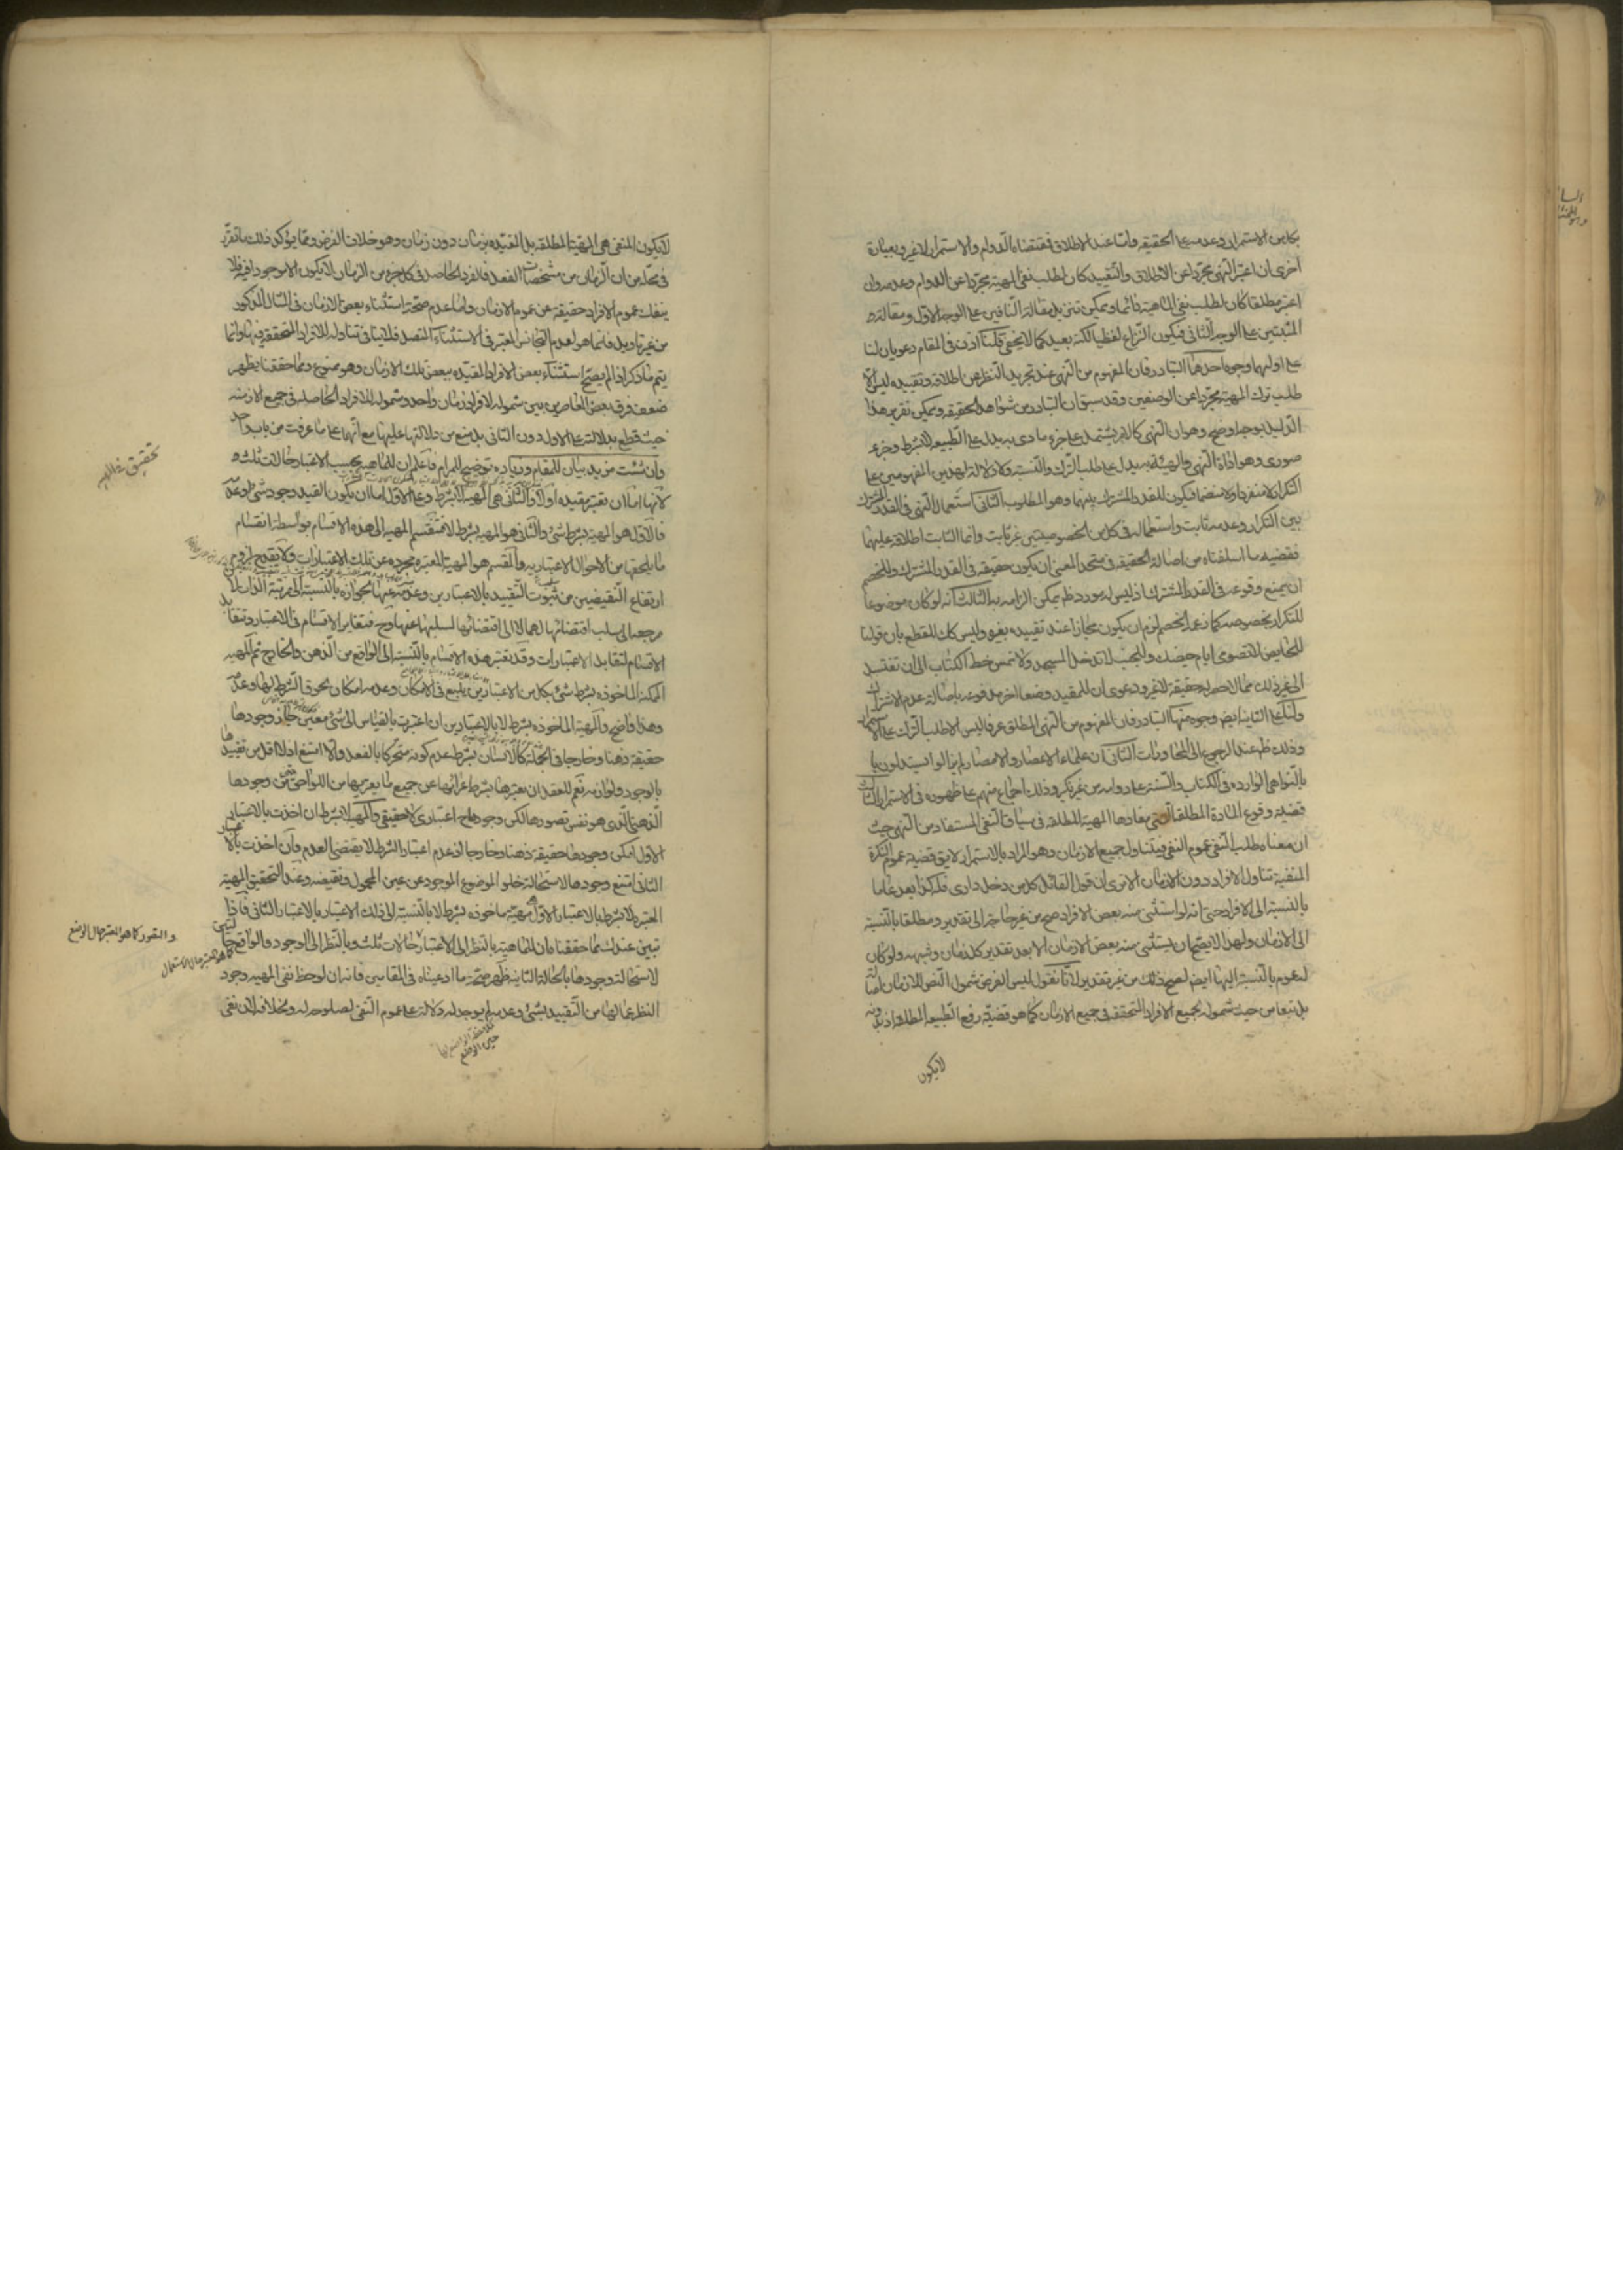 بكل من الاستمرار وعدمه على الحقيقة واما عند الاطلاق فمقتضاه الدوام والاستمرار لا غير وبعبارة
اخرى ان اعتبر النهى مجردا عن الاطلاق والتقييد كان لطلب نفى المهية مجردا عن الدوام وعدمه وان
اعتبر مطلقا كان لطلب نفى الماهية دائما ويمكن تنزيل مقالة النافين على الوجه الاول ومقالة
المثبتين على الوجه الثانى فيكون النزاع لفظيا لكنه بعيد كما لا يخفى فلنا اذن فى المقام دعويان لنا
على اوليهما وجوه احدها التبادر فان المفهوم من النهى عند تجريد النظر عن اطلاقه وتقييده ليس الا
طلب ترك المهية مجردا عن الوصفين وقد سبق ان التبادر من شواهد الحقيقة ويمكن تقرير هذا
الدليل بوجه اوضح وهو ان النهى كالامر يشتمل على جزء مادى يدل على الطبيعة لا بشرط وجزء
صورى وهو اداة النهى والهيئة يدل على طلب الترك والنسبة ولا دلالة لهذين المفهومين على
التكرار لا منفردا ولا منضما فيكون للقدر المشترك بينهما وهو المطلوب الثانى استعمال النهى فى القدر المشترك
بين التكرار وعدمه ثابت واستعماله فى كل من الخصوصيتين غير ثابت وانما الثابت اطلاقه عليهما
فقضية ما اسلفناه من اصالة الحقيقة فى متحد المعنى ان يكون حقيقة فى القدر المشترك وللخصم
ان يمنع وقوعه فى القدر المشترك اذ ليس له مورد ظ يمكن الزامه به الثالث انه لو كان موضوعا
للتكرار بخصوصه كما زعمه الخصم لزم ان يكون مجازا عند تقييده بغيره وليس كك للقطع بان قولنا
للحايض لا تصومى ايام حيضك وللجنب لا تدخل المسجد ولا تمس خط الكتاب الى ان تغتسل
الى غير ذلك مما لا حصر له حقيقة لا غير ودعوى ان للمقيد وضعا اخر مدفوعة باصالة عدم الاشتراك
ولنا على الثانية ايض وجوه منها التبادر فان المفهوم من النهى المطلق عرفا ليس الا طلب الترك على الاستمرار
وذلك ظ عند الرجوع الى المحاورات الثانى ان علماء الاعصار والامصار لم يزالوا يستدلون
بالنواهى الواردة فى الكتاب والسنة على دوامه من غير نكير وذلك اجماع منهم على ظهوره فى الاستمرار الثالث
قضية وقوع المادة المطلقة التى مفادها المهية المطلقة فى سياق النفى المستفاد من النهى حيث
ان معناه طلب النفى عموم النفى فيتناول جميع الازمان وهو المراد بالاستمرار لا يق قضية عموم النكرة
المنفية تناول الافراد دون الازمان الا ترى ان قول القائل كل من دخل دارى فله كذا يعد عاما
بالنسبة الى الافراد حتى انه لو استثنى منه بعض الافراد صح من غير حاجة الى تقدير ومطلقا بالنسبة
الى الازمان ولهذا لا يصح ان يستثنى منه بعض الازمان الا بعد تقدير كل زمان وشبهه ولو كان
له عموم بالنسبة اليها ايض لصح ذلك من غير تقدير لانا نقول ليس الغرض شمول النص للازمان اصالة
بل تبعا من حيث شموله لجميع الافراد المتحققة فى جميع الازمان كما هو قضية رفع الطبيعة المطلقة اذ بدونه
لا يكون
لا يكون المنفى هى المهية المطلقة بل المقيده بزمان دون زمان وهو خلاف الفرض ومما يؤكد ذلك ما تقرر
فى محله من ان الزمان من مشخصات الفعل فالفرد الحاصل فى كل جزء من الزمان لا يكون الا موجودا فيه فلا
ينفك عموم الافراد حقيقة عن عموم الازمان واما عدم صحة استثناء بعض الازمان فى المثال المذكور
من غير تاويل فانما هو لعدم التجانس المعتبر فى الاستثناء المتصل فلا ينافى تناوله للافراد المتحققة فيها وانما
يتم ما ذكر اذا لم يصح استثناء بعض الافراد المقيده ببعض تلك الازمان وهو ممنوع ومما حققنا يظهر
ضعف فرق بعض المعاصرين بين شموله لافراد زمان واحد وشموله للافراد الحاصلة فى جميع الازمنة
حيث قطع بدلالته على الاول دون الثانى بل منع من دلالتها عليها مع انهما على ما عرفت من باب واحد
وان شئت مزيد بيان للمقام وزيادة توضيح للمرام فاعلم ان للماهية بحسب الاعتبار حالات ثلث
لانها اما ان تعتبر مقيده اولا والثانى هى المهية لا بشرط وعلى الاول اما ان يكون القيد وجود شئ او عدمه
فالاول هو المهية بشرط شئ والثانى هو المهية بشرط لا فتقسيم المهية الى هذه الاقسام بواسطة انقسام
ما يلحقها من الاحوال الاعتباريه والمقسم هو المهية المعتبرة مجرده عن تلك الاعتبارات ولا يقدح لزوم
ارتفاع النقيضين من ثبوت التقييد بالاعتبارين وعدمه عنها لجوازه بالنسبة الى مرتبة الذات اذ
مرجعه الى سلب اقتضائها لهما لا الى اقتضائها لسلبهما عنها وح فتغاير الاقسام فى الاعتبار وتقابل
الاقسام لتقابل الاعتبارات وقد تعتبر هذه الاقسام بالنسبة الى الواقع من الذهن والخارج ثم المهية
الممكنة الماخوذه بشرط شئ بكل من الاعتبارين يتبع فى الامكان وعدمه امكان لحوق الشرط لها وعدمه
وهذا واضح والمهية الماخوذه بشرط لا بالاعتبارين ان اعتبرت بالقياس الى شئ معين جاز وجودها
حقيقة ذهنا وخارجا فى الجملة كالانسان بشرط عدم كونه متحركا بالفعل والا امتنع اذ لا اقل من تقييدها
بالوجود ولوازمه نعم للعقل ان يعتبرها بشرط عرائها عن جميع ما يعتريها من اللواحق حتى من وجودها
الذهنى الذى هو نفس تصورها لكن وجودها ح اعتبارى لا حقيقى والمهية لا بشرط ان اخذت بالاعتبار
الاول امكن وجودها حقيقة ذهنا وخارجا اذ عدم اعتبار الشرط لا يقتضى العدم وان اخذت بالاعتبار
الثانى امتنع وجودها لاستحالة خلو الموضوع الموجود عن عين المحمول ونقيضه وعند التحقيق المهية
المعتبرة لا بشرط بالاعتبار الاول مهية ماخوذه بشرط لا بالنسبة الى ذلك الاعتبار بالاعتبار الثانى فاذا
تبين عندك مما حققنا ان للماهية بالنظر الى الاعتبار حالات ثلث وبالنظر الى الوجود والواقع حالتين
لاستحالة وجودها بالحالة الثانية ظهر صحة ما ادعيناه فى المقامين فانه ان لوحظ نفى المهية وجود
النظر عما لها من التقييد بشئ وعدمه لم يوجد له دلالة على عموم النفى لصلوحه له ولخلافه لان نفى
والتصور كما هو المعتبر حال الوضع
كما هو المعتبر حال الاستعمال
حين الوضع